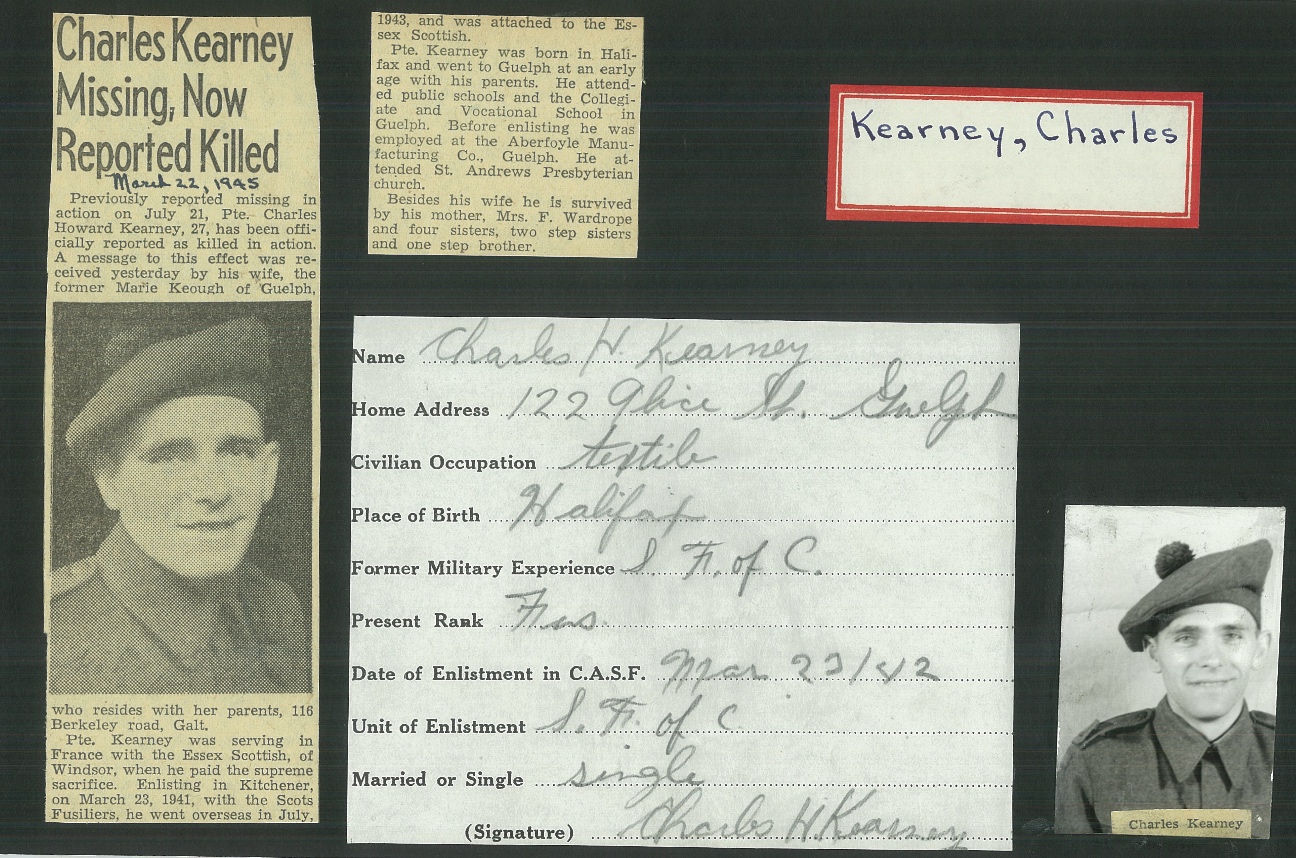 Charles Kearney
Missing, Now
Reported Killed
March 22, 1945
Previously reported missing in
action on July 21, Pte. Charles
Howard Kearney, 27, has been offi-
cially reported as killed in action.
A message to this effect was re-
ceived yesterday by his wife, the
former Marie Keough of Guelph,
who resides with her parents, 116
Berkeley road, Galt.
Pte. Kearney was serving in
France with the Essex Scottish, of
Windsor, when he paid the supreme
sacrifice. Enlisting in Kitchener,
on March 23, 1941, with the Scots
Fusiliers, he went overseas in July,
1943, and was attached to the Es-
sex Scottish.
Pte. Kearney was born in Hali-
fax and went to Guelph at an early
age with his parents. He attend-
ed public schools and the Collegi-
ate and Vocational School in
Guelph. Before enlisting he was
employed at the Aberfoyle Manu-
facturing Co., Guelph. He at-
tended St. Andrews Presbyterian
church.
Besides his wife he is survived
by his mother, Mrs. F. Wardrope
and four sisters, two step sisters
and one step brother.
Kearney, Charles
Name Charles H. Kearney
Home Address 122 Alice St. Guelph
Civilian Occupation textile
Place of Birth Halifax
Former Military Experience S. F. of C.
Present Rank Fus.
Date of Enlistment in C.A.S.F. Mar 23/42
Unit of Enlistment S. F. of C
Married or Single single
(Signature) Charles H. Kearney
Charles Kearney